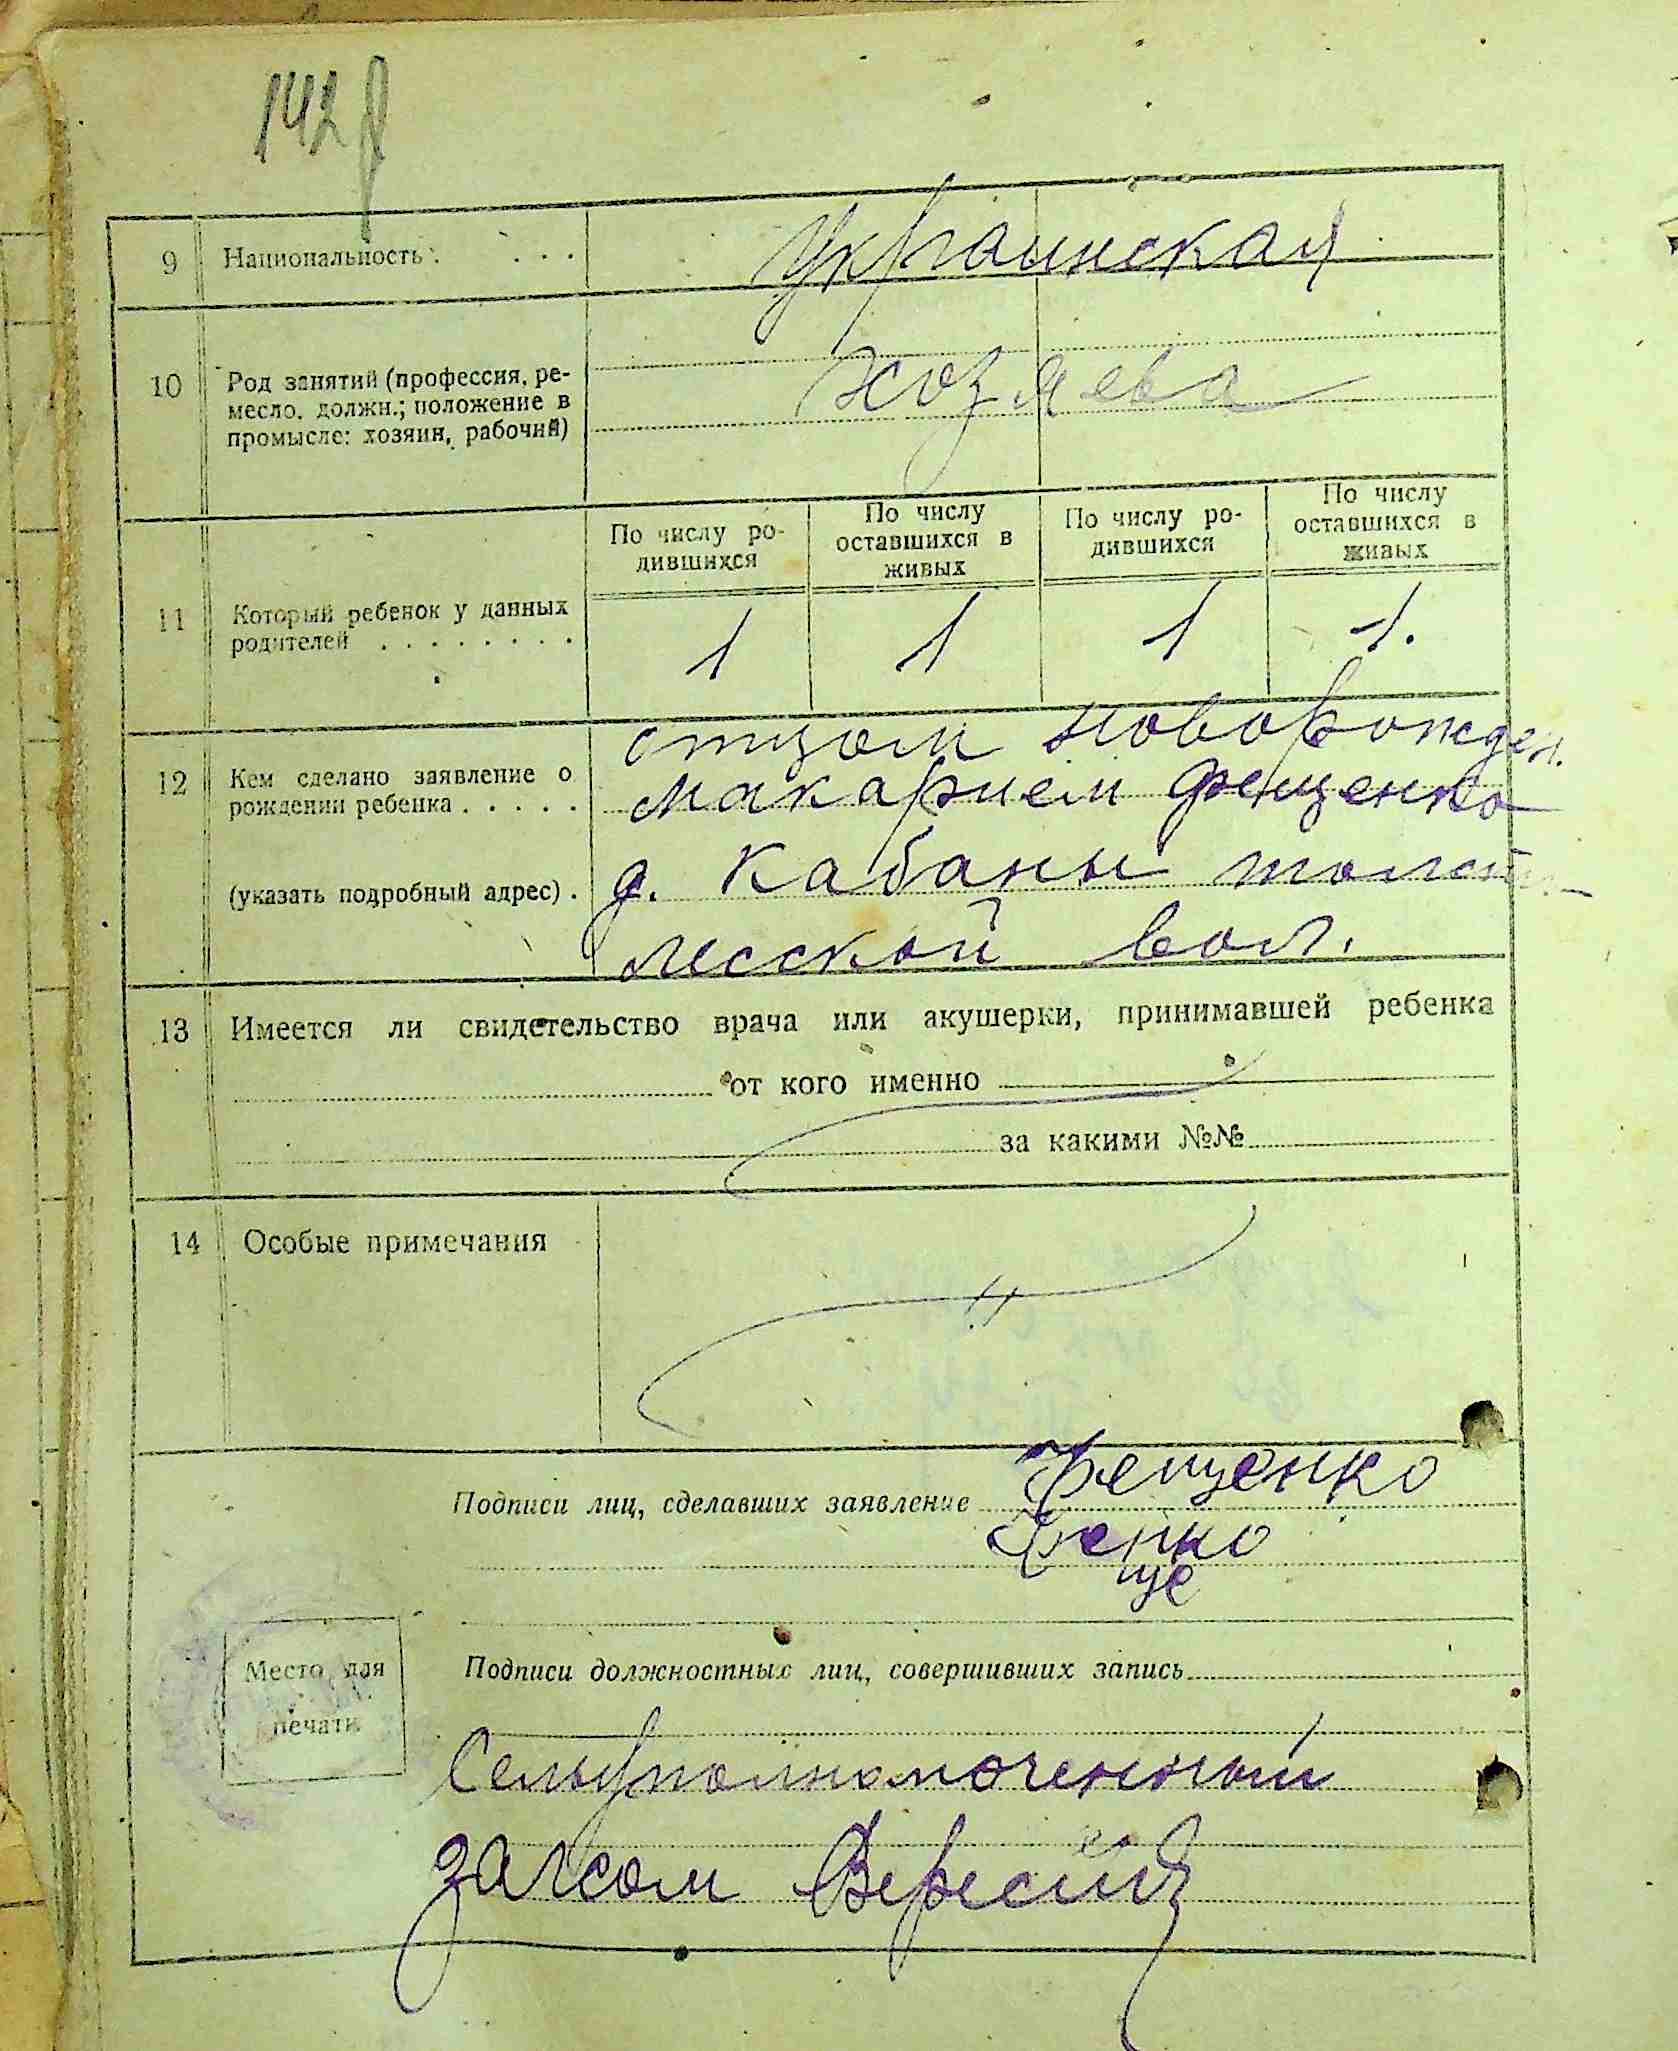 142
9 Национальность . . . . Украинская
10 Род занятий (профессия, ре-
месло, должн.; положение в
промысле: хозяин, рабочий)
хозяева
По числу ро-
дившихся
По числу
оставшихся в
живых
По числу ро-
дившихся
По числу
оставшихся в
живых
11 Который ребенок у данных
родителей . . . . . . . .
1 1 1 1.
отцом новорожден.
12 Кем сделано заявление о
рождении ребенка . . . . .
Макарием Фещенко
(указать подробный адрес) . д. Кабаны толсто-
лесской вол.
13 Имеется ли свидетельство врача или акушерки, принимавшей ребенка
от кого именно
за какими №№
14 Особые примечания
Подписи лиц, сделавших заявление Фещенко
Фенко
ще
Место для
печати
Подписи должностных лиц, совершивших запись
Сельуполномоченный
загсом